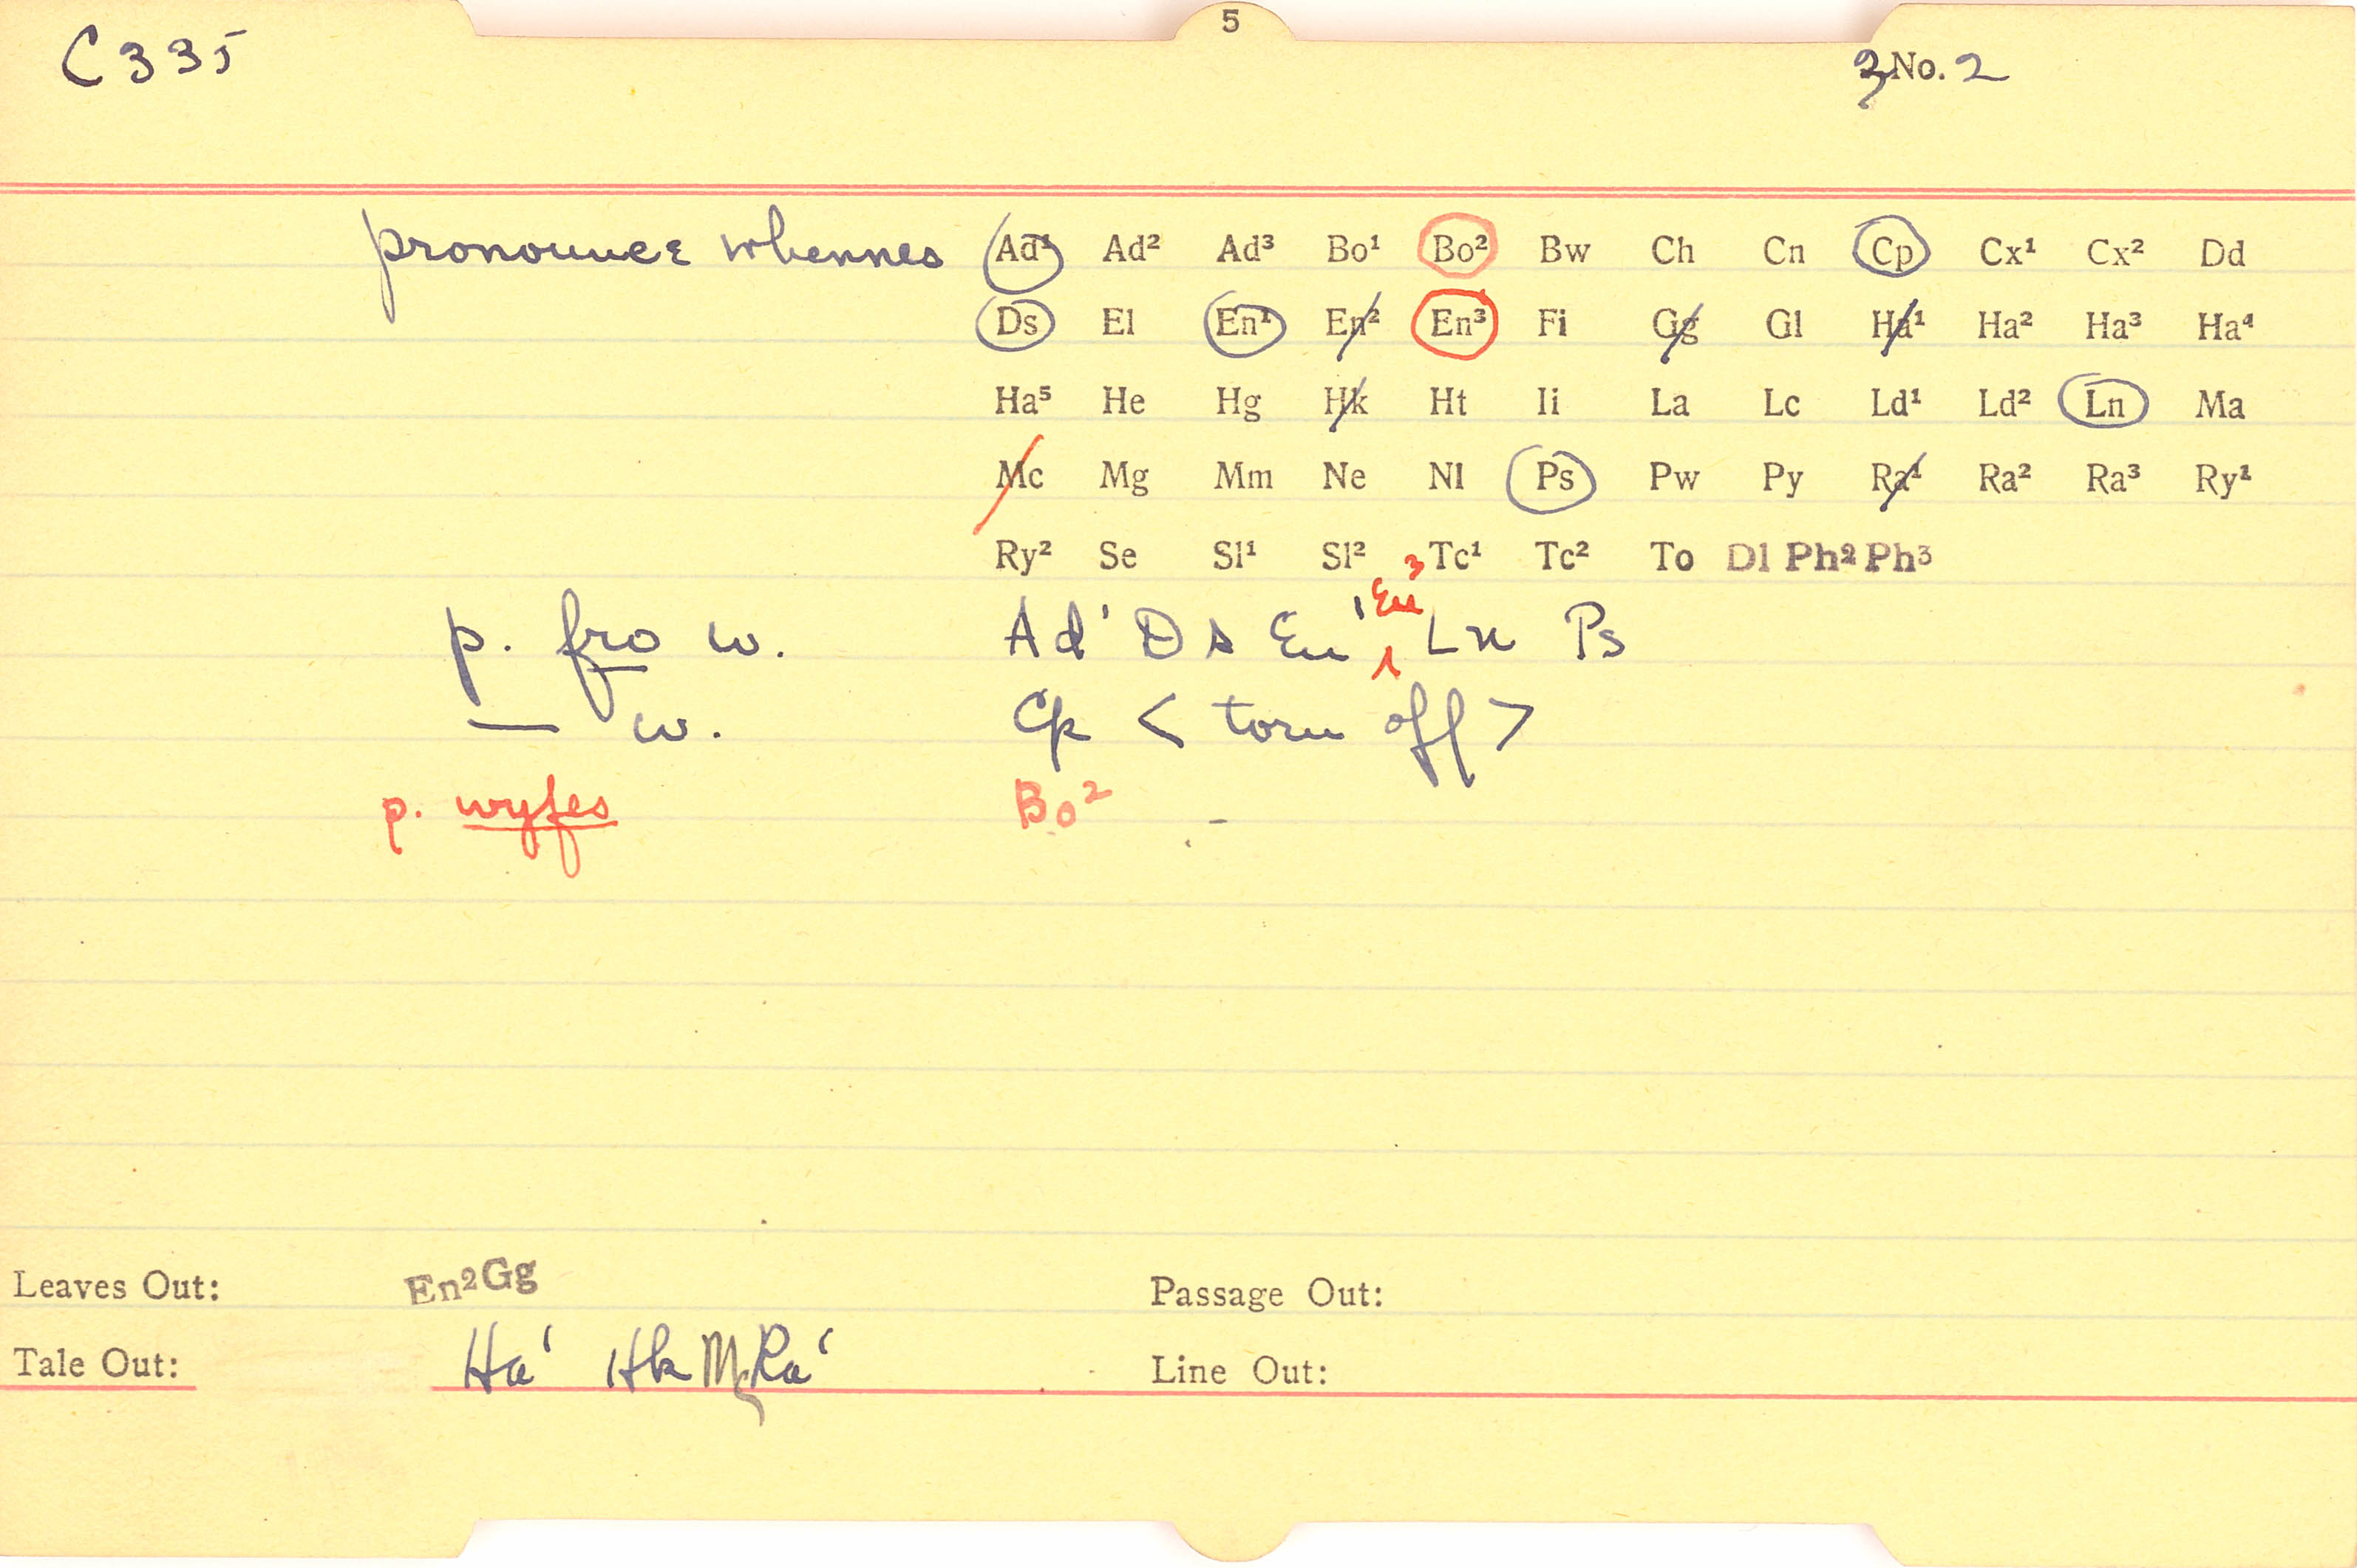 5
C 335
3 No. 2
pronounce whennes Ad¹ Ad² Ad³ Bo¹ Bo² Bw Ch Cn Cp Cx¹ Cx² Dd
Ds El En¹ En² En³ Fi Gg Gl Ha¹ Ha² Ha³ Ha⁴
Ha⁵ He Hg Hk Ht Ii La Lc Ld¹ Ld² Ln Ma
Mc Mg Mm Ne Nl Ps Pw Py Ra¹ Ra² Ra³ Ry¹
Ry² Se Sl¹ Sl² Tc¹ Tc² To Dl Ph² Ph³
p. fro w. Ad¹ Ds En¹ En³ Ln Ps
— w. Cp < torn off >
p. wyfes Bo²
Leaves Out: En²Gg Passage Out:
Tale Out: Ha¹ Hk Mc Ra¹ Line Out: